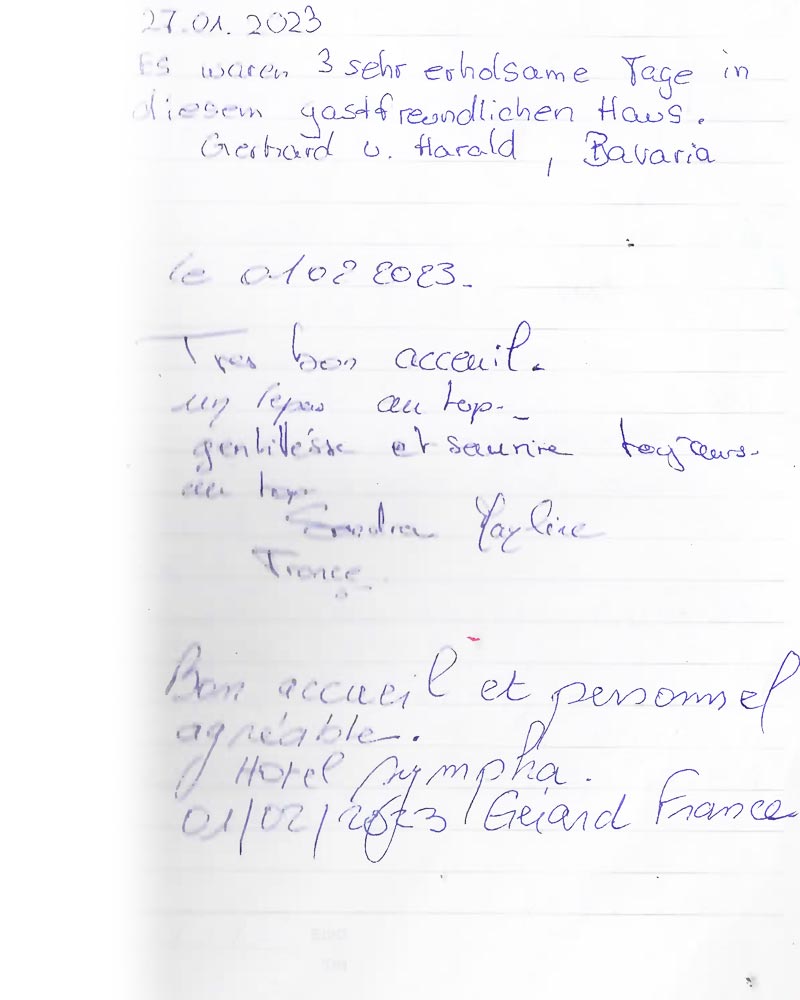 27.01.2023
Es waren 3 sehr erholsame Tage in
diesem gastfreundlichen Haus.
Gerhard u. Harald, Bavaria
le 01 02 2023.
Tres bon acceuil.
un repas au top.
gentillesse et sourire toujours
au top.
Sandra
France
Bon accueil et personnel
agréable.
Hotel Nympha.
01/02/2023 Gérard France